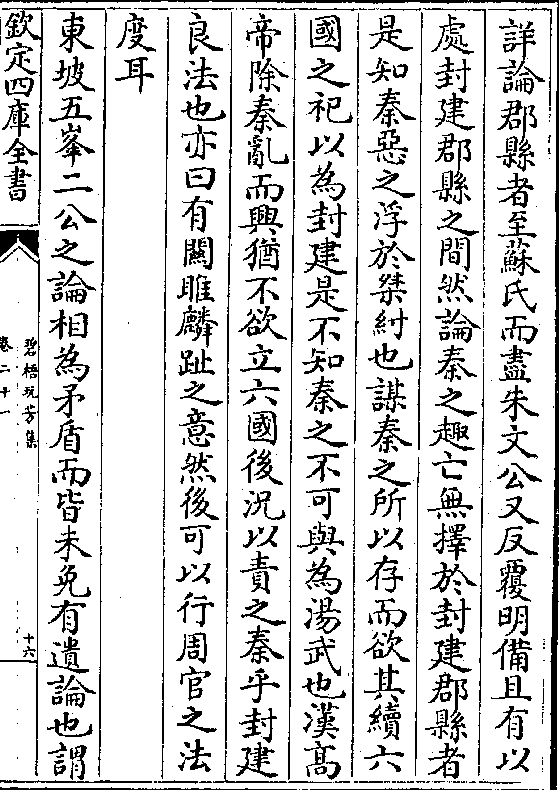 詳論郡縣者至蘇氏而盡朱文公又反覆明備且有以
處封建郡縣之間然論秦之趣亡無擇於封建郡縣者
是知秦惡之浮於桀紂也謀秦之所以存而欲其續六
國之祀以為封建是不知秦之不可與為湯武也漢髙
帝除秦亂而興猶不欲立六國後況以責之秦乎封建
良法也亦曰有關雎麟趾之意然後可以行周官之法
度耳
東坡五峯二公之論相為矛盾而皆未免有遺論也謂
欽定四庫全書
碧梧玩芳集
卷二十一
十六